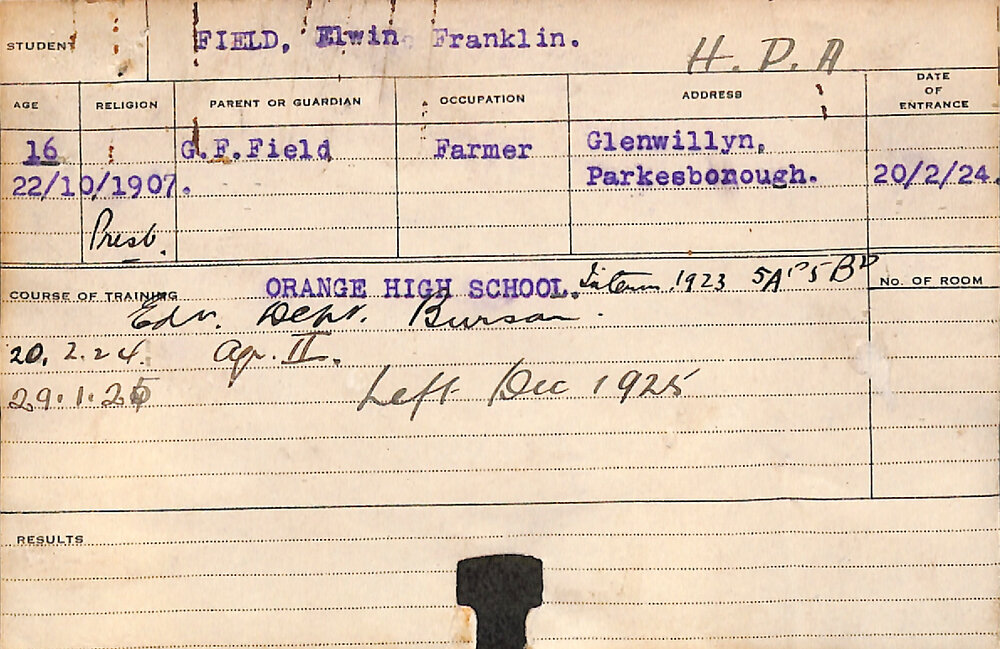 STUDENT FIELD, Elwin Franklin.
H. D. A
AGE RELIGION PARENT OR GUARDIAN OCCUPATION ADDRESS DATE OF ENTRANCE
16 G.F.Field Farmer Glenwillyn,
22/10/1907. Parkesborough. 20/2/24.
Presb.
COURSE OF TRAINING ORANGE HIGH SCHOOL. Interm. 1923 5A's 5B's No. OF ROOM
Edn. Dept. Bursar.
20.2.24. Agr. II.
29.1.25 Left Dec 1925
RESULTS